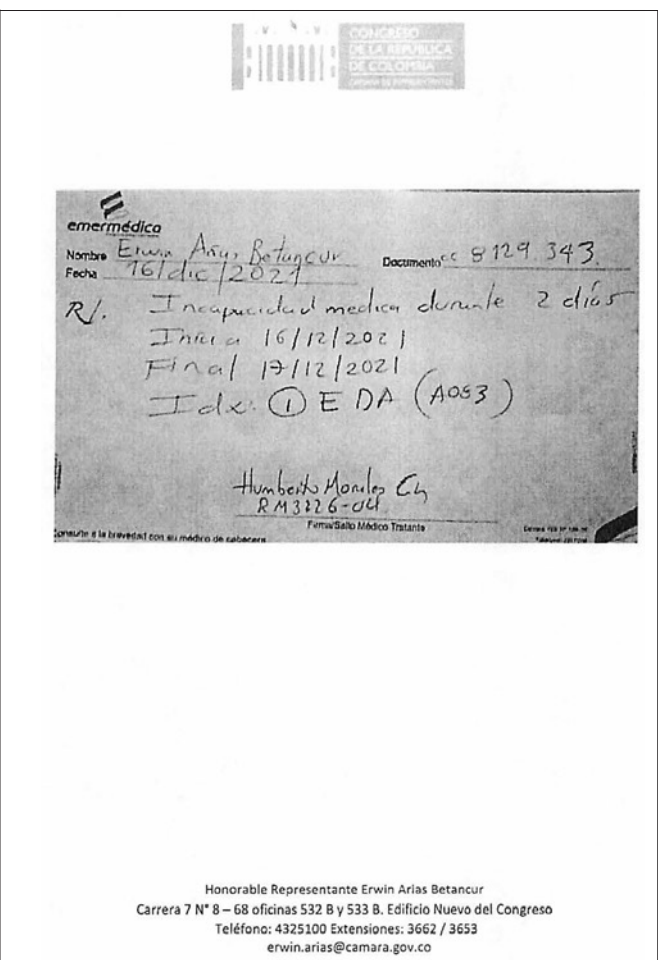 CONGRESO
DE LA REPÚBLICA
DE COLOMBIA
CÁMARA DE REPRESENTANTES
emermédica
Nombre Erwin Arias Betancur Documento cc 8129.343
Fecha 16/dic/2021
R/. Incapacidad medica durante 2 días
Inicia 16/12/2021
Final 17/12/2021
Idx: ① EDA (A083)
Humberto Morales Ch
RM3226-04
Firma/Sello Médico Tratante
Consulte a la brevedad con su médico de cabecera
Honorable Representante Erwin Arias Betancur
Carrera 7 N° 8 – 68 oficinas 532 B y 533 B. Edificio Nuevo del Congreso
Teléfono: 4325100 Extensiones: 3662 / 3653
erwin.arias@camara.gov.co